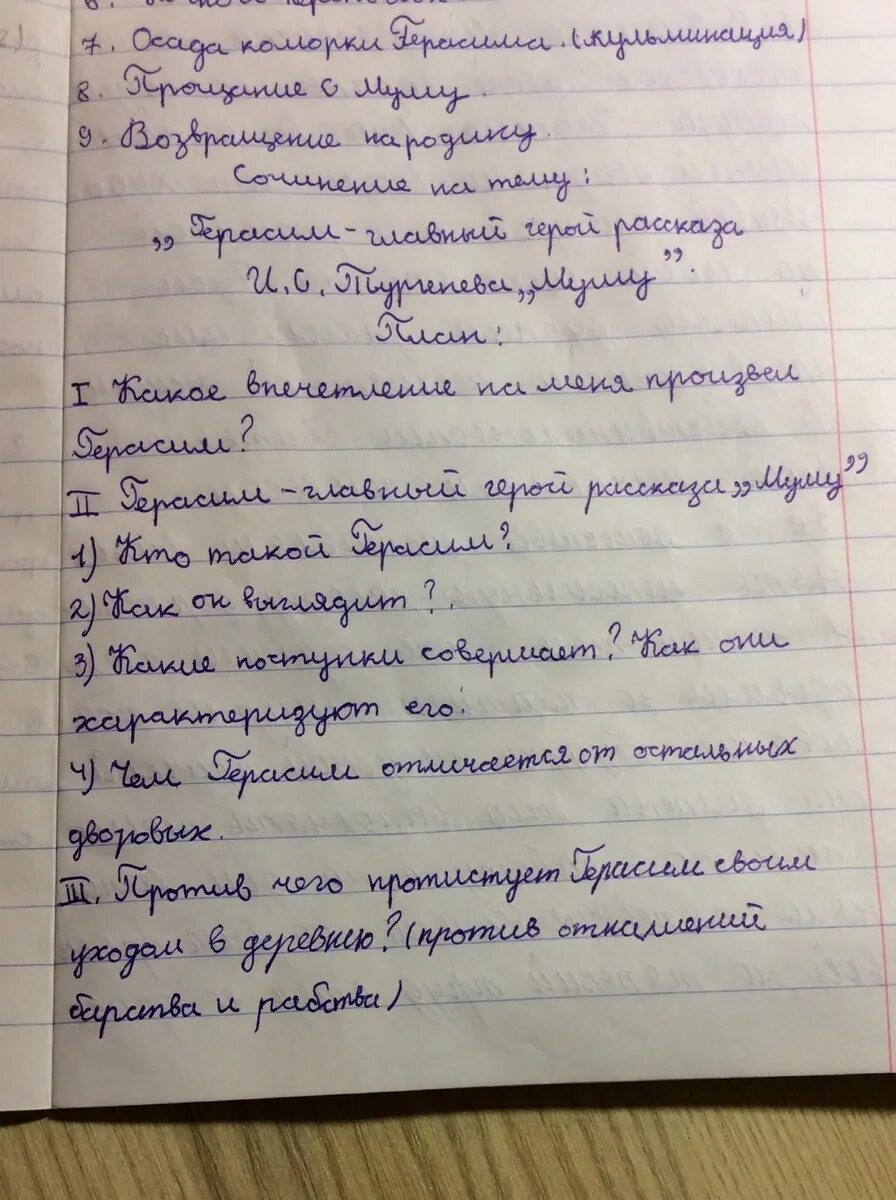 7. Осада коморки Герасима. (кульминация)
8. Прощание с Муму.
9. Возвращение на родину.
Сочинение на тему:
„Герасим - главный герой рассказа
И. С. Тургенева „Муму”.
План:
I Какое впечетление на меня произвел
Герасим?
II Герасим - главный герой рассказа „Муму”
1) Кто такой Герасим?
2) Как он выглядит?
3) Какие поступки совершает? Как они
характеризуют его.
4) Чем Герасим отличается от остальных
дворовых.
III. Против чего протистует Герасим своим
уходом в деревню? (против отнашений
барства и рабства)